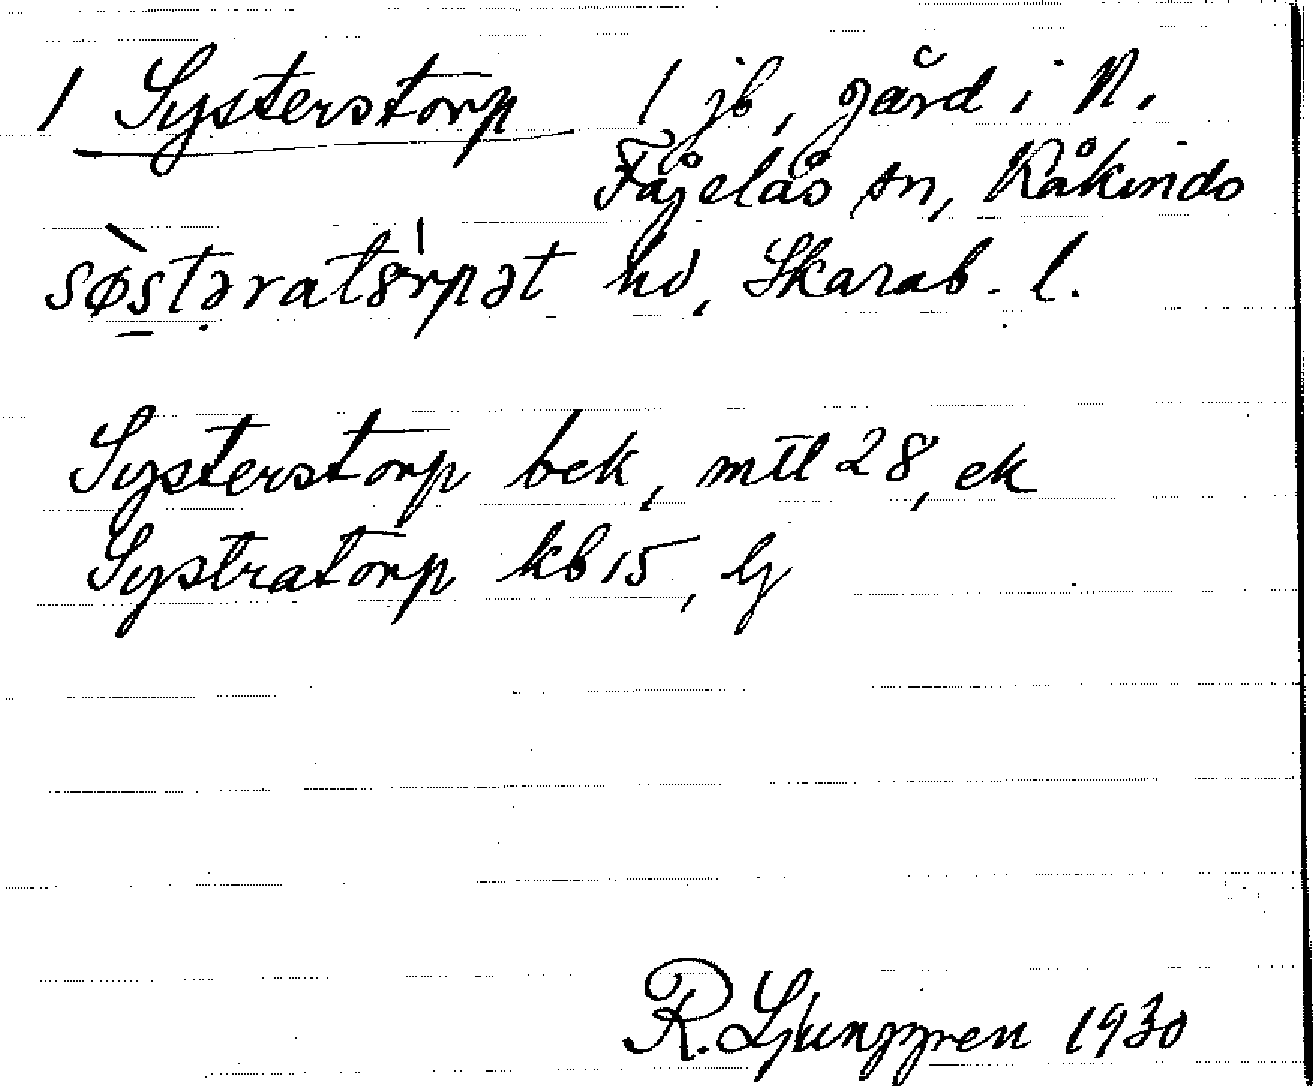 1 Systerstorp 1 jb, gård i N.
Fågelås sn, Kåkinds
sø̀stəratsrpət hd, Skarab. l.
Systerstorp bek, mtl 28, ek
Systratorp kb 15, Lj
R. Ljunggren 1930